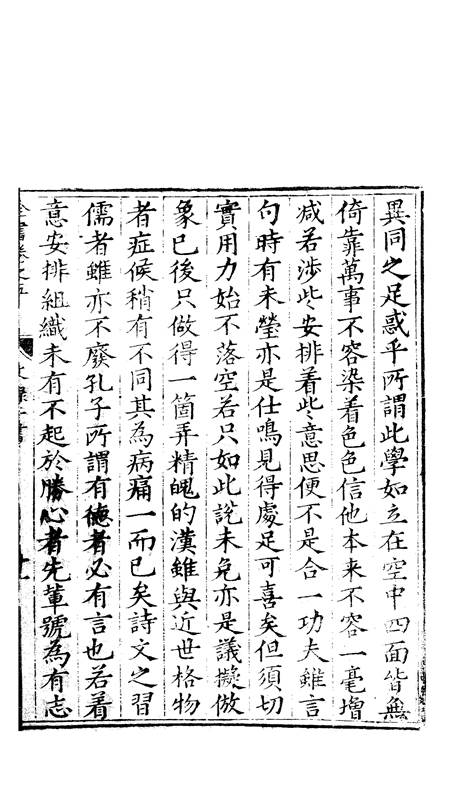 異同之足惑乎所謂此學如立在空中四面皆無
倚靠萬事不容染着色色信他本来不容一毫增
减若涉些安排着些意思便不是合一功夫雖言
句時有未瑩亦是仕鳴見得處足可喜矣但須切
實用力始不落空若只如此說未免亦是議擬倣
象已後只做得一箇弄精魄的漢雖與近世格物
者症候稍有不同其為病痛一而已矣詩文之習
儒者雖亦不廢孔子所謂有德者必有言也若着
意安排組織未有不起於勝心者先輩號為有志
全書卷之五 文錄二書 十一